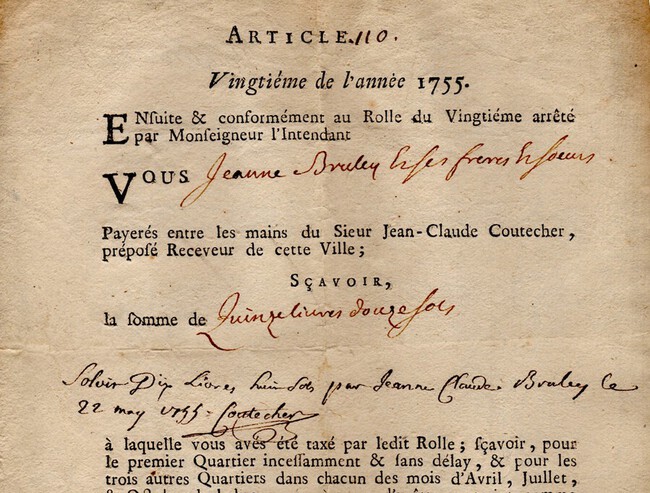 ARTICLE.110.
Vingtiéme de l'année 1755.
ENſuite & conformément au Rolle du Vingtiéme arrêté
par Monſeigneur l'Intendant
VOUS Jeanne Bruley & ses freres & soeurs
Payerés entre les mains du Sieur Jean-Claude Coutecher,
prépoſé Receveur de cette Ville ;
SÇAVOIR,
la ſomme de Quinze livres douze sols
Solvit Dix Livres huit sols par Jeanne Claude Bruley le
22 may 1755. Coutecher
à laquelle vous avés été taxé par ledit Rolle ; ſçavoir, pour
le premier Quartier inceſſamment & ſans délay, & pour les
trois autres Quartiers dans chacun des mois d'Avril, Juillet,